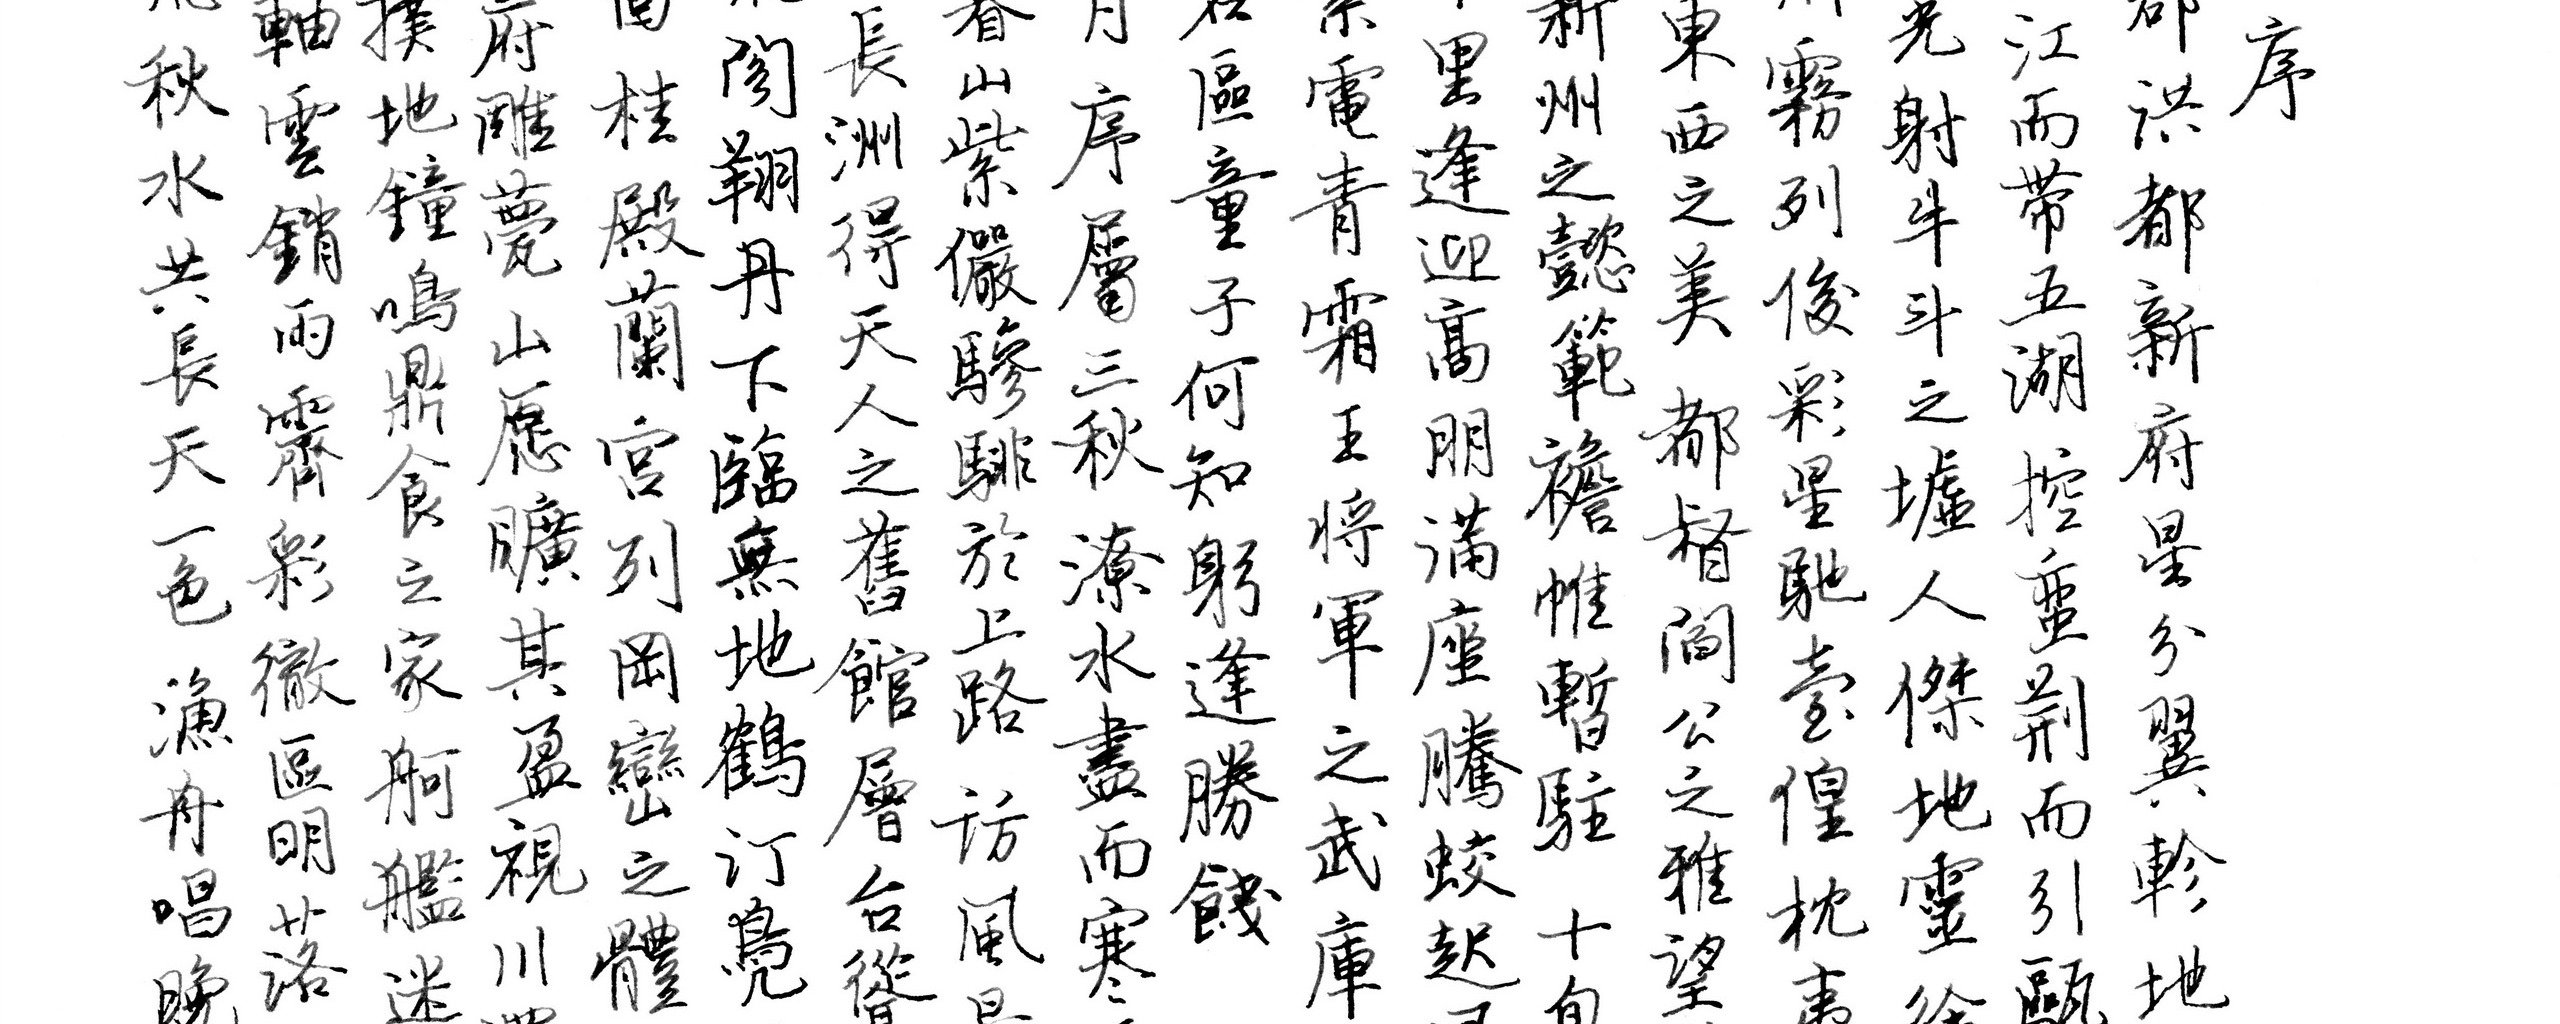 序
郡洪都新府星分翼軫地
江而带五湖控蛮荆而引甌
光射牛斗之墟人傑地靈徐
霧列俊彩星馳臺隍枕夷
東西之美都督閻公之雅望
新州之懿範襜帷暫駐十旬
里逢迎高朋满座騰蛟起
紫電青霜王将軍之武庫
名區童子何知躬逢勝餞
月序屬三秋潦水盡而寒
春山紫儼驂騑於上路访風景
長洲得天人之舊館層台聳
閣翔丹下臨無地鶴汀鳧
桂殿蘭宫列岡巒之體
府雕甍山愿曠其盈視川
撲地鐘鳴鼎食之家舸艦迷
軸雲銷雨霽彩徹區明落
秋水共長天一色漁舟唱晚